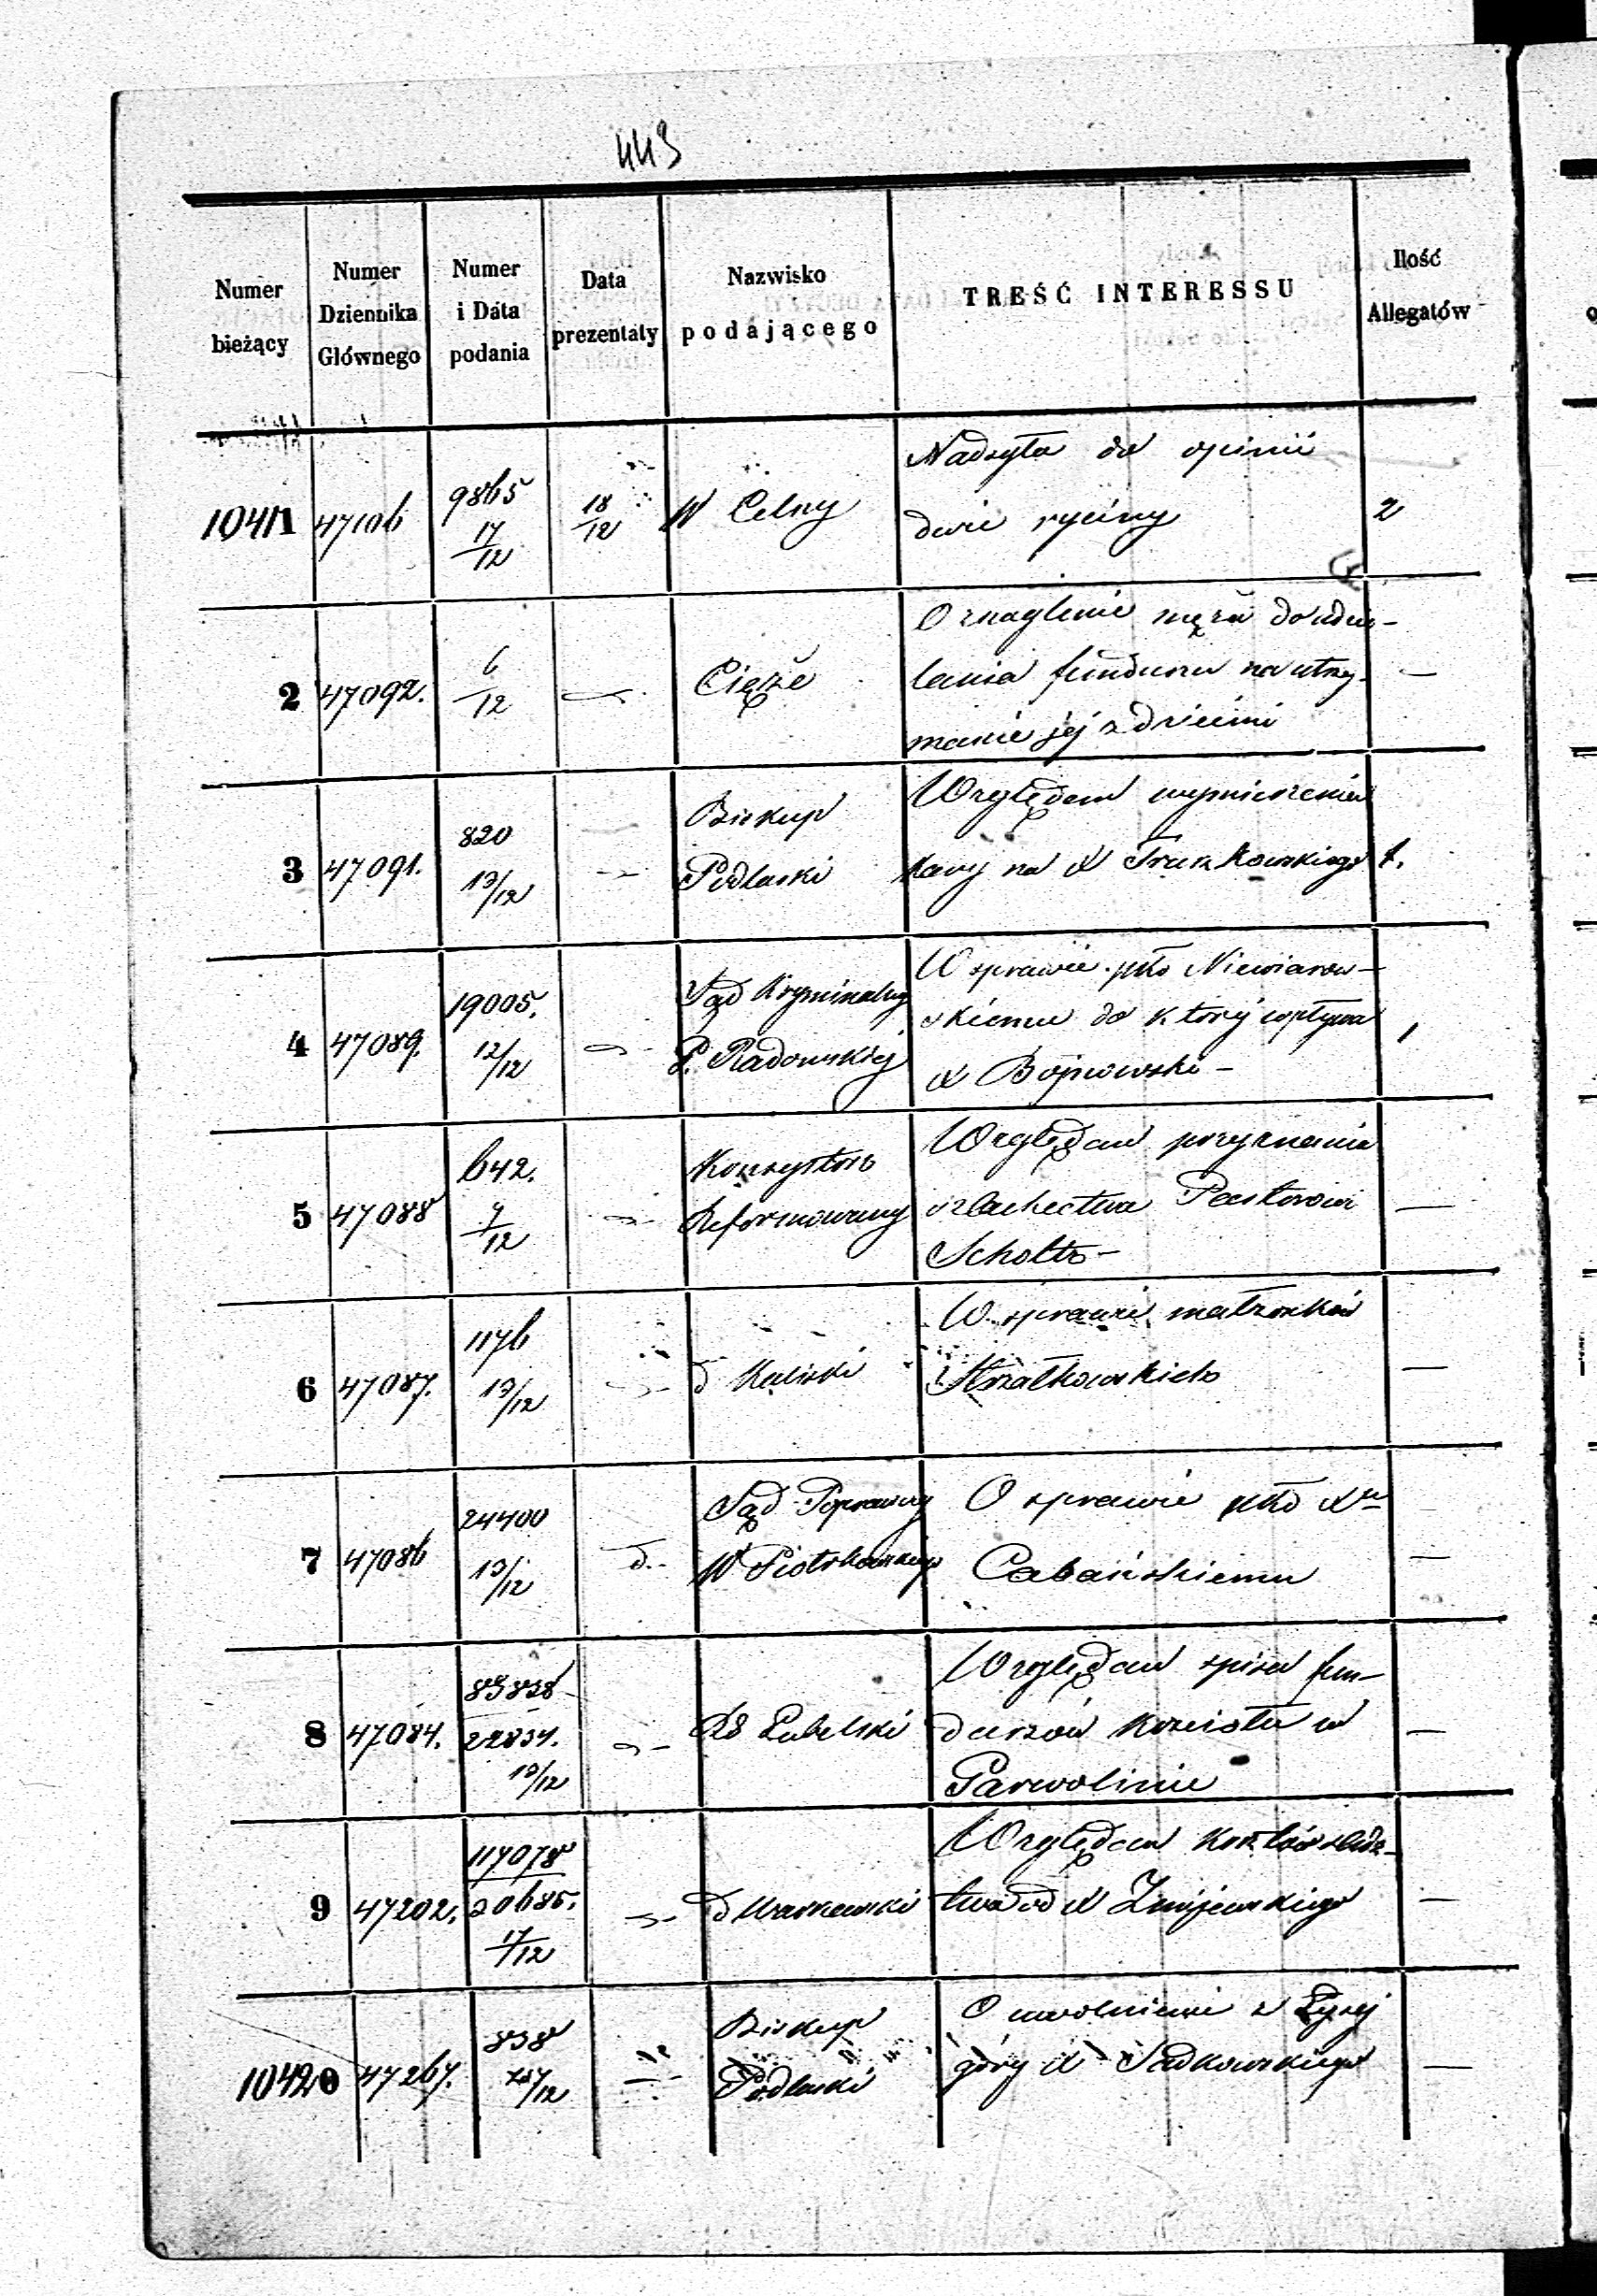 443
Numer bieżący
Numer Dziennika Głównego
Numer i Data podania
Data prezentaty
Nazwisko podającego
TREŚĆ INTERESSU
Ilość Allegatów
10411 47106 9865 17/12 18/12 W Celny
Nadsyła do opinii
dwie ryciny
2
2 47092. 6/12 Ciężże
O znaglenie męża do udzie-
lania funduszu na utrzy-
manie jej z dziećmi
—
3 47091. 820 13/12
Biskup
Podlaski
Względem wymierzenia
kary na X Truszkowskiego
1.
4 47089. 19005. 12/12
Sąd Kryminalny
G. Radomskiej
W sprawie pko Niewiarow-
skiemu do któréj wpływa
X Bojnowski –
1
5 47088 642. 9/12
Konsystorz
Reformowany
Względem przyznania
szlachectwa Pastorowi
Scholtz –
—
6 47087. 1176 13/12
d Kaliski
W sprawie małżonków
Strzałkowskich
—
7 47086 24400 13/12 d. -
Sąd Poprawczy
W Piotrkowskiego
O sprawie pko Xu
Cabańskiemu
—
8 47084. 83828 22834. 13/12
RG Lubelski
Względem spisu fun-
duszów kościoła w
Garwolinie
—
9 47202. 117078 20685. 17/12
d Warszawski
Względem kosztów śledz-
twa od X Żmijewskiego
—
10420 47267. 838 /12
Biskup
Podlaski
O uwolnienie z Łysej
góry X Sadkowskiego
—